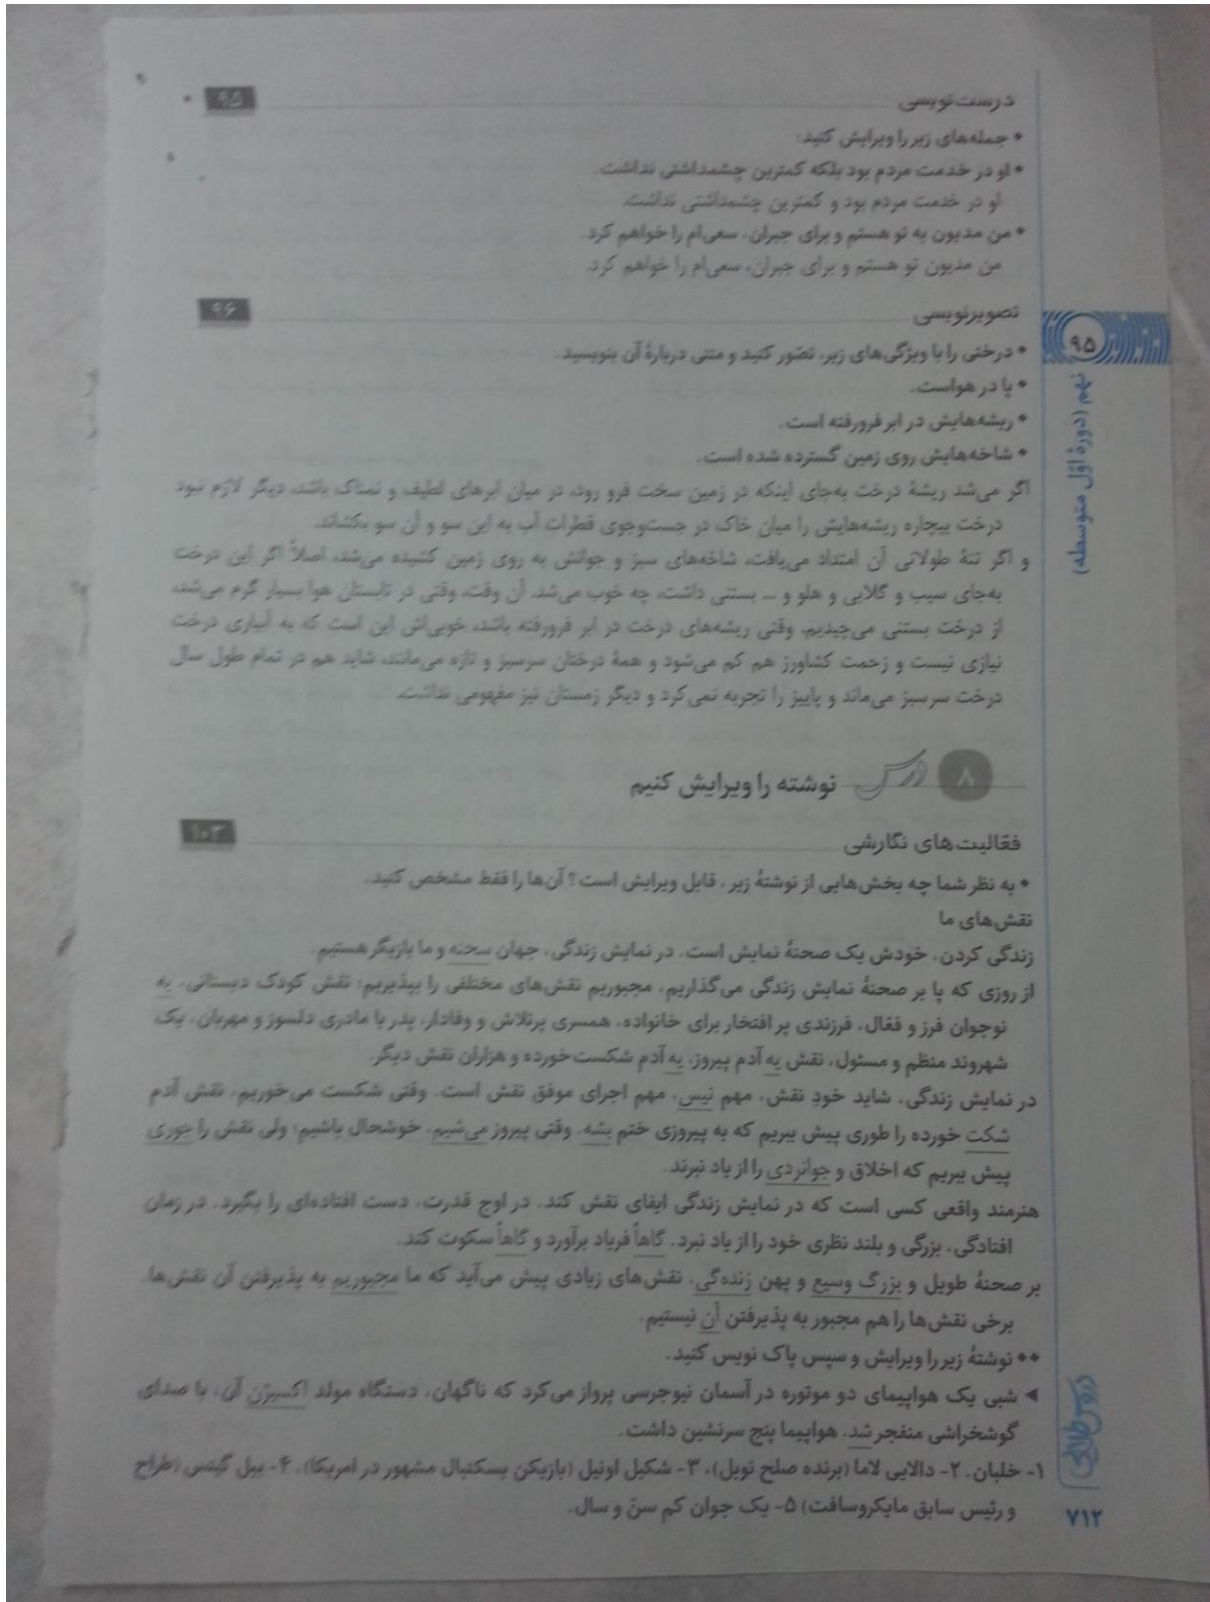 درست‌نویسی ۹۵
• جمله‌های زیر را ویرایش کنید:
• او در خدمت مردم بود بلکه کمترین چشمداشتی نداشت.
او در خدمت مردم بود و کمترین چشمداشتی نداشت.
• من مدیون به تو هستم و برای جبران، سعی‌ام را خواهم کرد.
من مدیون تو هستم و برای جبران، سعی‌ام را خواهم کرد.
تصویرنویسی ۹۶
• درختی را با ویژگی‌های زیر، تصّور کنید و متنی دربارهٔ آن بنویسید.
• پا در هواست.
• ریشه‌هایش در ابر فرورفته است.
• شاخه‌هایش روی زمین گسترده شده است.
اگر می‌شد ریشهٔ درخت به‌جای اینکه در زمین سخت فرو رود، در میان ابرهای لطیف و نمناک باشد، دیگر لازم نبود
درخت بیچاره ریشه‌هایش را میان خاک در جست‌وجوی قطرات آب به این سو و آن سو بکشاند.
و اگر تنهٔ طولانی آن امتداد می‌یافت، شاخه‌های سبز و جوانش به روی زمین کشیده می‌شد، اصلاً اگر این درخت
به‌جای سیب و گلابی و هلو و ... بستنی داشت، چه خوب می‌شد. آن وقت، وقتی در تابستان هوا بسیار گرم می‌شد،
از درخت بستنی می‌چیدیم. وقتی ریشه‌های درخت در ابر فرورفته باشد، خوبی‌اش این است که به آبیاری درخت
نیازی نیست و زحمت کشاورز هم کم می‌شود و همهٔ درختان سرسبز و تازه می‌مانند، شاید هم در تمام طول سال
درخت سرسبز می‌ماند و پاییز را تجربه نمی‌کرد و دیگر زمستان نیز مفهومی نداشت.
درس ۸ نوشته را ویرایش کنیم
فعّالیت‌های نگارشی ۱۰۳
• به نظر شما چه بخش‌هایی از نوشتهٔ زیر، قابل ویرایش است؟ آن‌ها را فقط مشخص کنید.
نقش‌های ما
زندگی کردن، خودش یک صحنهٔ نمایش است. در نمایش زندگی، جهان سحنه و ما بازیگر هستیم.
از روزی که پا بر صحنهٔ نمایش زندگی می‌گذاریم، مجبوریم نقش‌های مختلفی را بپذیریم؛ نقش کودک دبستانی، یه
نوجوان فرز و فعّال، فرزندی پر افتخار برای خانواده، همسری پرتلاش و وفادار، پدر یا مادری دلسوز و مهربان، یک
شهروند منظم و مسئول، نقش یه آدم پیروز، یه آدم شکست‌خورده و هزاران نقش دیگر.
در نمایش زندگی، شاید خودِ نقش، مهم نیس، مهم اجرای موفق نقش است. وقتی شکست می‌خوریم، نقش آدم
شکت خورده را طوری پیش ببریم که به پیروزی ختم بشه. وقتی پیروز می‌شیم، خوشحال باشیم؛ ولی نقش را جوری
پیش ببریم که اخلاق و جوانردی را از یاد نبرند.
هنرمند واقعی کسی است که در نمایش زندگی ایفای نقش کند. در اوج قدرت، دست افتاده‌ای را بگیرد. در زمان
افتادگی، بزرگی و بلند نظری خود را از یاد نبرد. گاهاً فریاد برآورد و گاهاً سکوت کند.
بر صحنهٔ طویل و بزرگ وسیع و پهن زنده‌گی، نقش‌های زیادی پیش می‌آید که ما مجبوریم به پذیرفتن آن نقش‌ها.
برخی نقش‌ها را هم مجبور به پذیرفتن آن نیستیم.
•• نوشتهٔ زیر را ویرایش و سپس پاک نویس کنید.
◄ شبی یک هواپیمای دو موتوره در آسمان نیوجرسی پرواز می‌کرد که ناگهان، دستگاه مولد اکسیژن آن، با صدای
گوشخراشی منفجر شد. هواپیما پنج سرنشین داشت.
۱- خلبان. ۲- دالایی لاما (برنده صلح نوبل)، ۳- شکیل اونیل (بازیکن بسکتبال مشهور در امریکا). ۴- بیل گیتس (طراح
و رئیس سابق مایکروسافت) ۵- یک جوان کم سنّ و سال.
۹۵
نهم (دورهٔ اوّل متوسطه)
دروس طلایی
۷۱۲